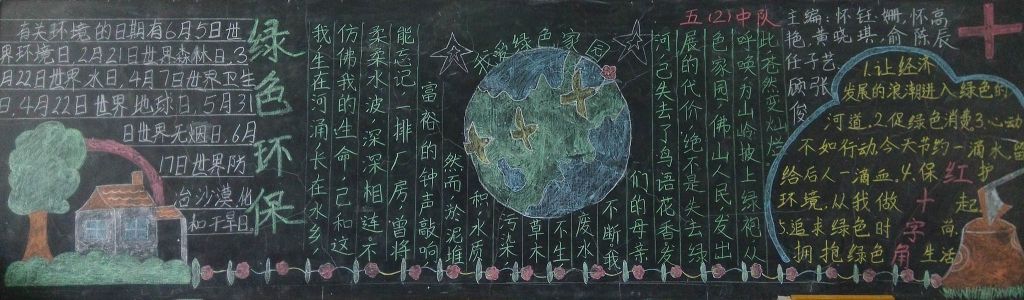 有关环境的日期有6月5日世
界环境日,2月21日世界森林日,3
月22日世界水日,4月7日世界卫生
日,4月22日世界地球日,5月31
日世界无烟日,6月
17日世界防
治沙漠化
和干旱日.
绿色环保
绿色家园
五(2)中队
我生在河涌,长在水乡,
仿佛我的生命已和这
柔柔水波深深相连.不
能忘记一排厂房,曾将
富裕的钟声敲响
然而淤泥堆
积,水质
污染
草木
不生
废水
不断,我
们的母亲
河已失去了鸟语花香发
展的代价绝不是失去绿
色家园,佛山人民发出
呼唤为山岭披上绿袍从
此苍然变灿烂
主编:怀钰姗,怀高
艳,黄晓琪,俞陈辰
任子艺
顾张
俊
1.让经济
发展的浪潮进入绿色的
河道.2.促绿色消费3.心动
不如行动今天节约一滴水留
给后人一滴血.4.保护
环境.从我做起
5.追求绿色时尚
拥抱绿色生活
红十字角